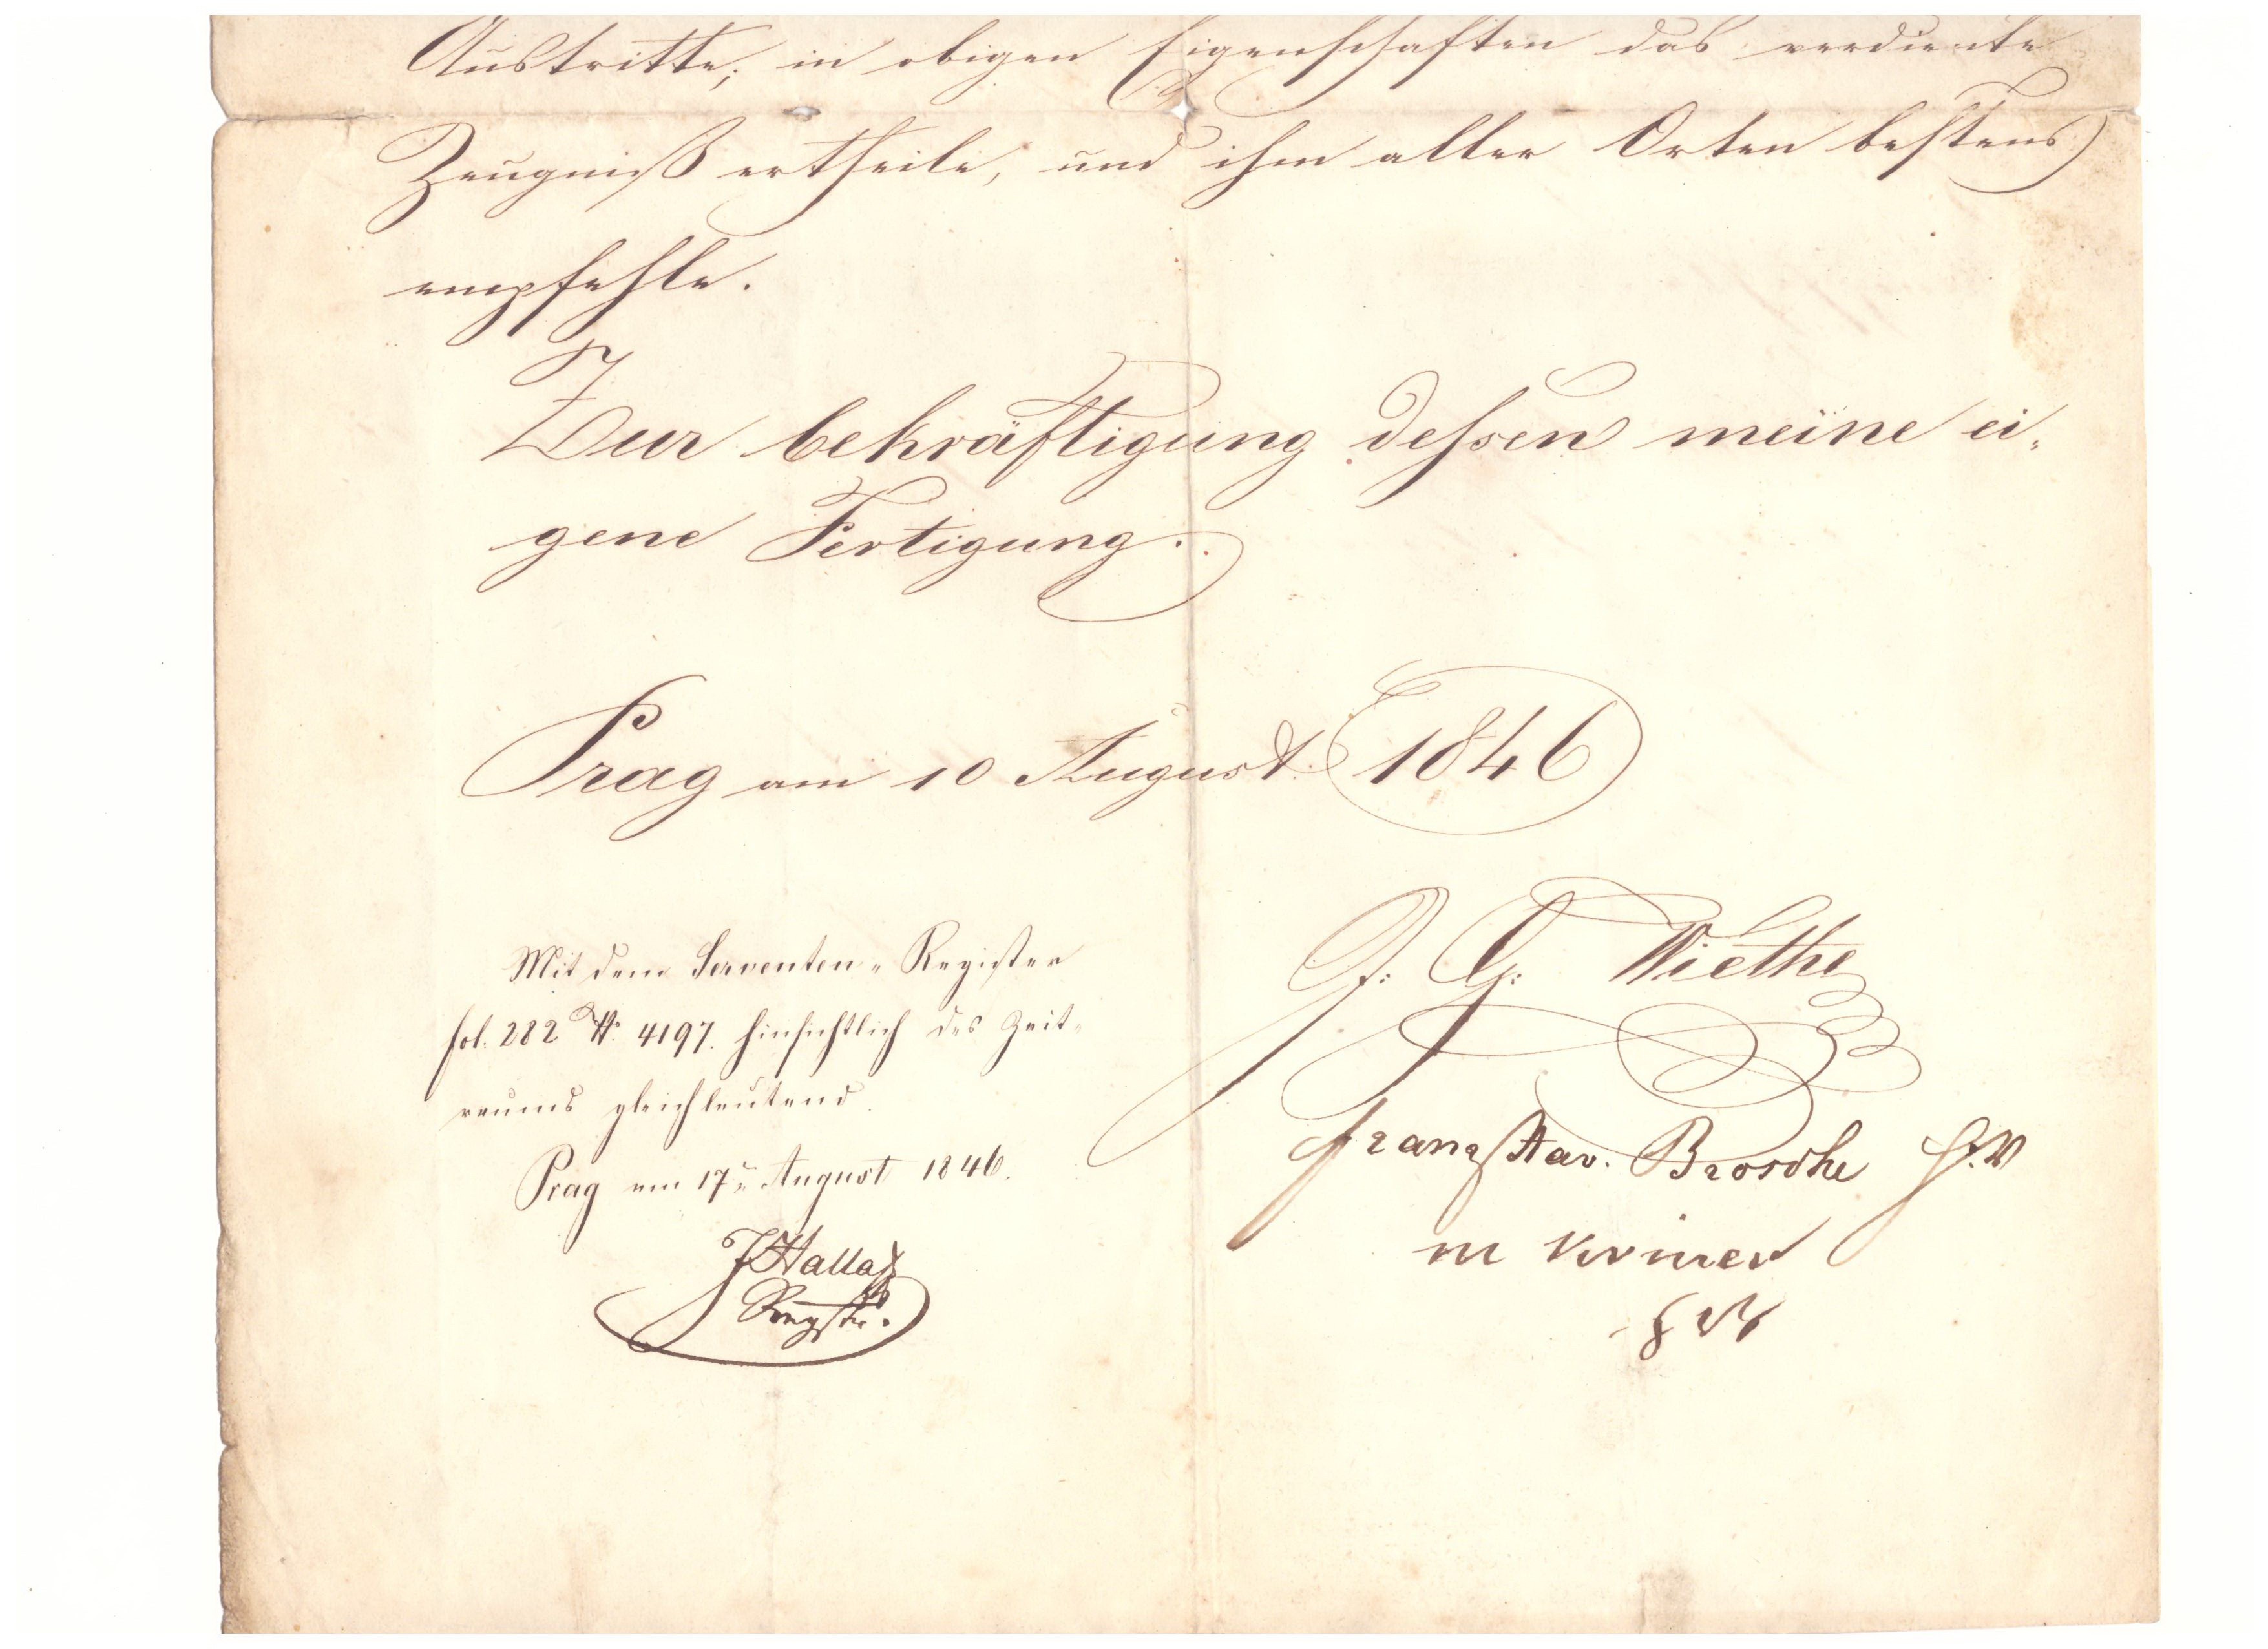 Austritte, in obigen Eigenschaften das verdiente
Zeugniß ertheile, und ihm aller Orten bestens
empfehle.
Zur bekräftigung dessen meine ei„
gene Fertigung.
Prag am 10 August. 1846
Mit dem Serventen„Register
fol. 282 N: 4197. hinsichtlich des Zeit„
raums gleichlautend.
Prag am 17n August 1846.
J Hallaß
Regstr.
J: G: Wiethe
Franz Xav. Brosche